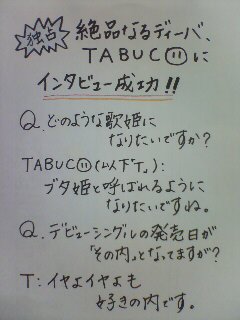 独占
絶品なるディーバ、
TABUCOに
インタビュー成功!!
Q.どのような歌姫に
なりたいですか?
TABUCO(以下「T」):
ブタ姫と呼ばれるように
なりたいですね。
Q.デビューシングルの発売日が
「その内」となってますが?
T:イヤよイヤよも
好きの内です。